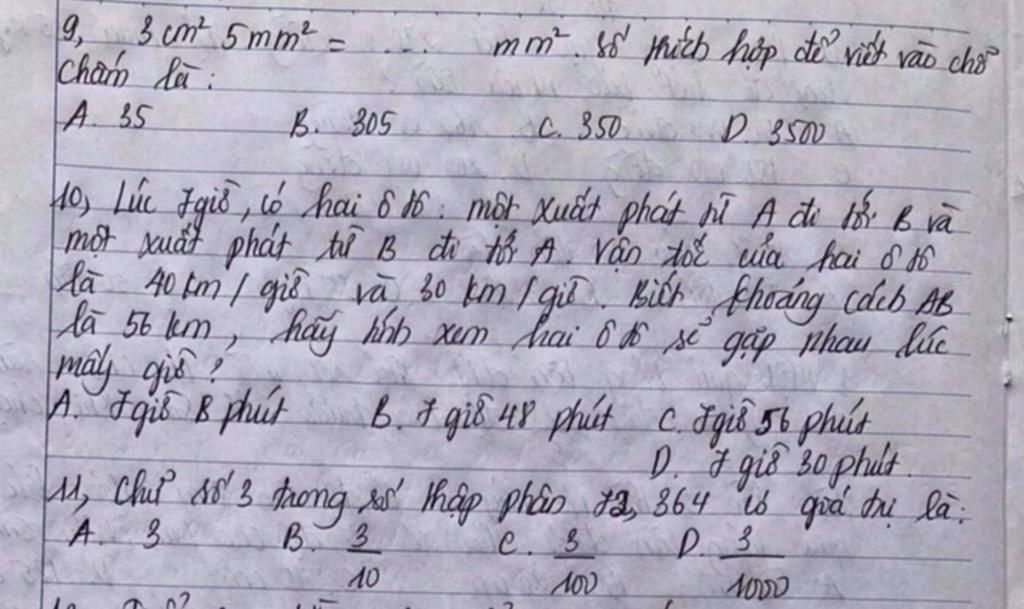 9, 3cm² 5mm² = ... mm². Số thích hợp để viết vào chỗ
chấm là:
A. 35 B. 305 C. 350 D. 3500
10, Lúc 7giờ, có hai ô tô: một xuất phát từ A đi tới B và
một xuất phát từ B đi tới A. Vận tốc của hai ô tô
là 40 km/giờ và 30 km/giờ. Biết khoảng cách AB
là 56 km, hãy tính xem hai ô tô sẽ gặp nhau lúc
mấy giờ?
A. 7giờ 8 phút B. 7 giờ 48 phút C. 7giờ 56 phút
D. 7 giờ 30 phút.
11, Chữ số 3 trong số thập phân 72,364 có giá trị là:
A. 3 B. 3/10 C. 3/100 D. 3/1000